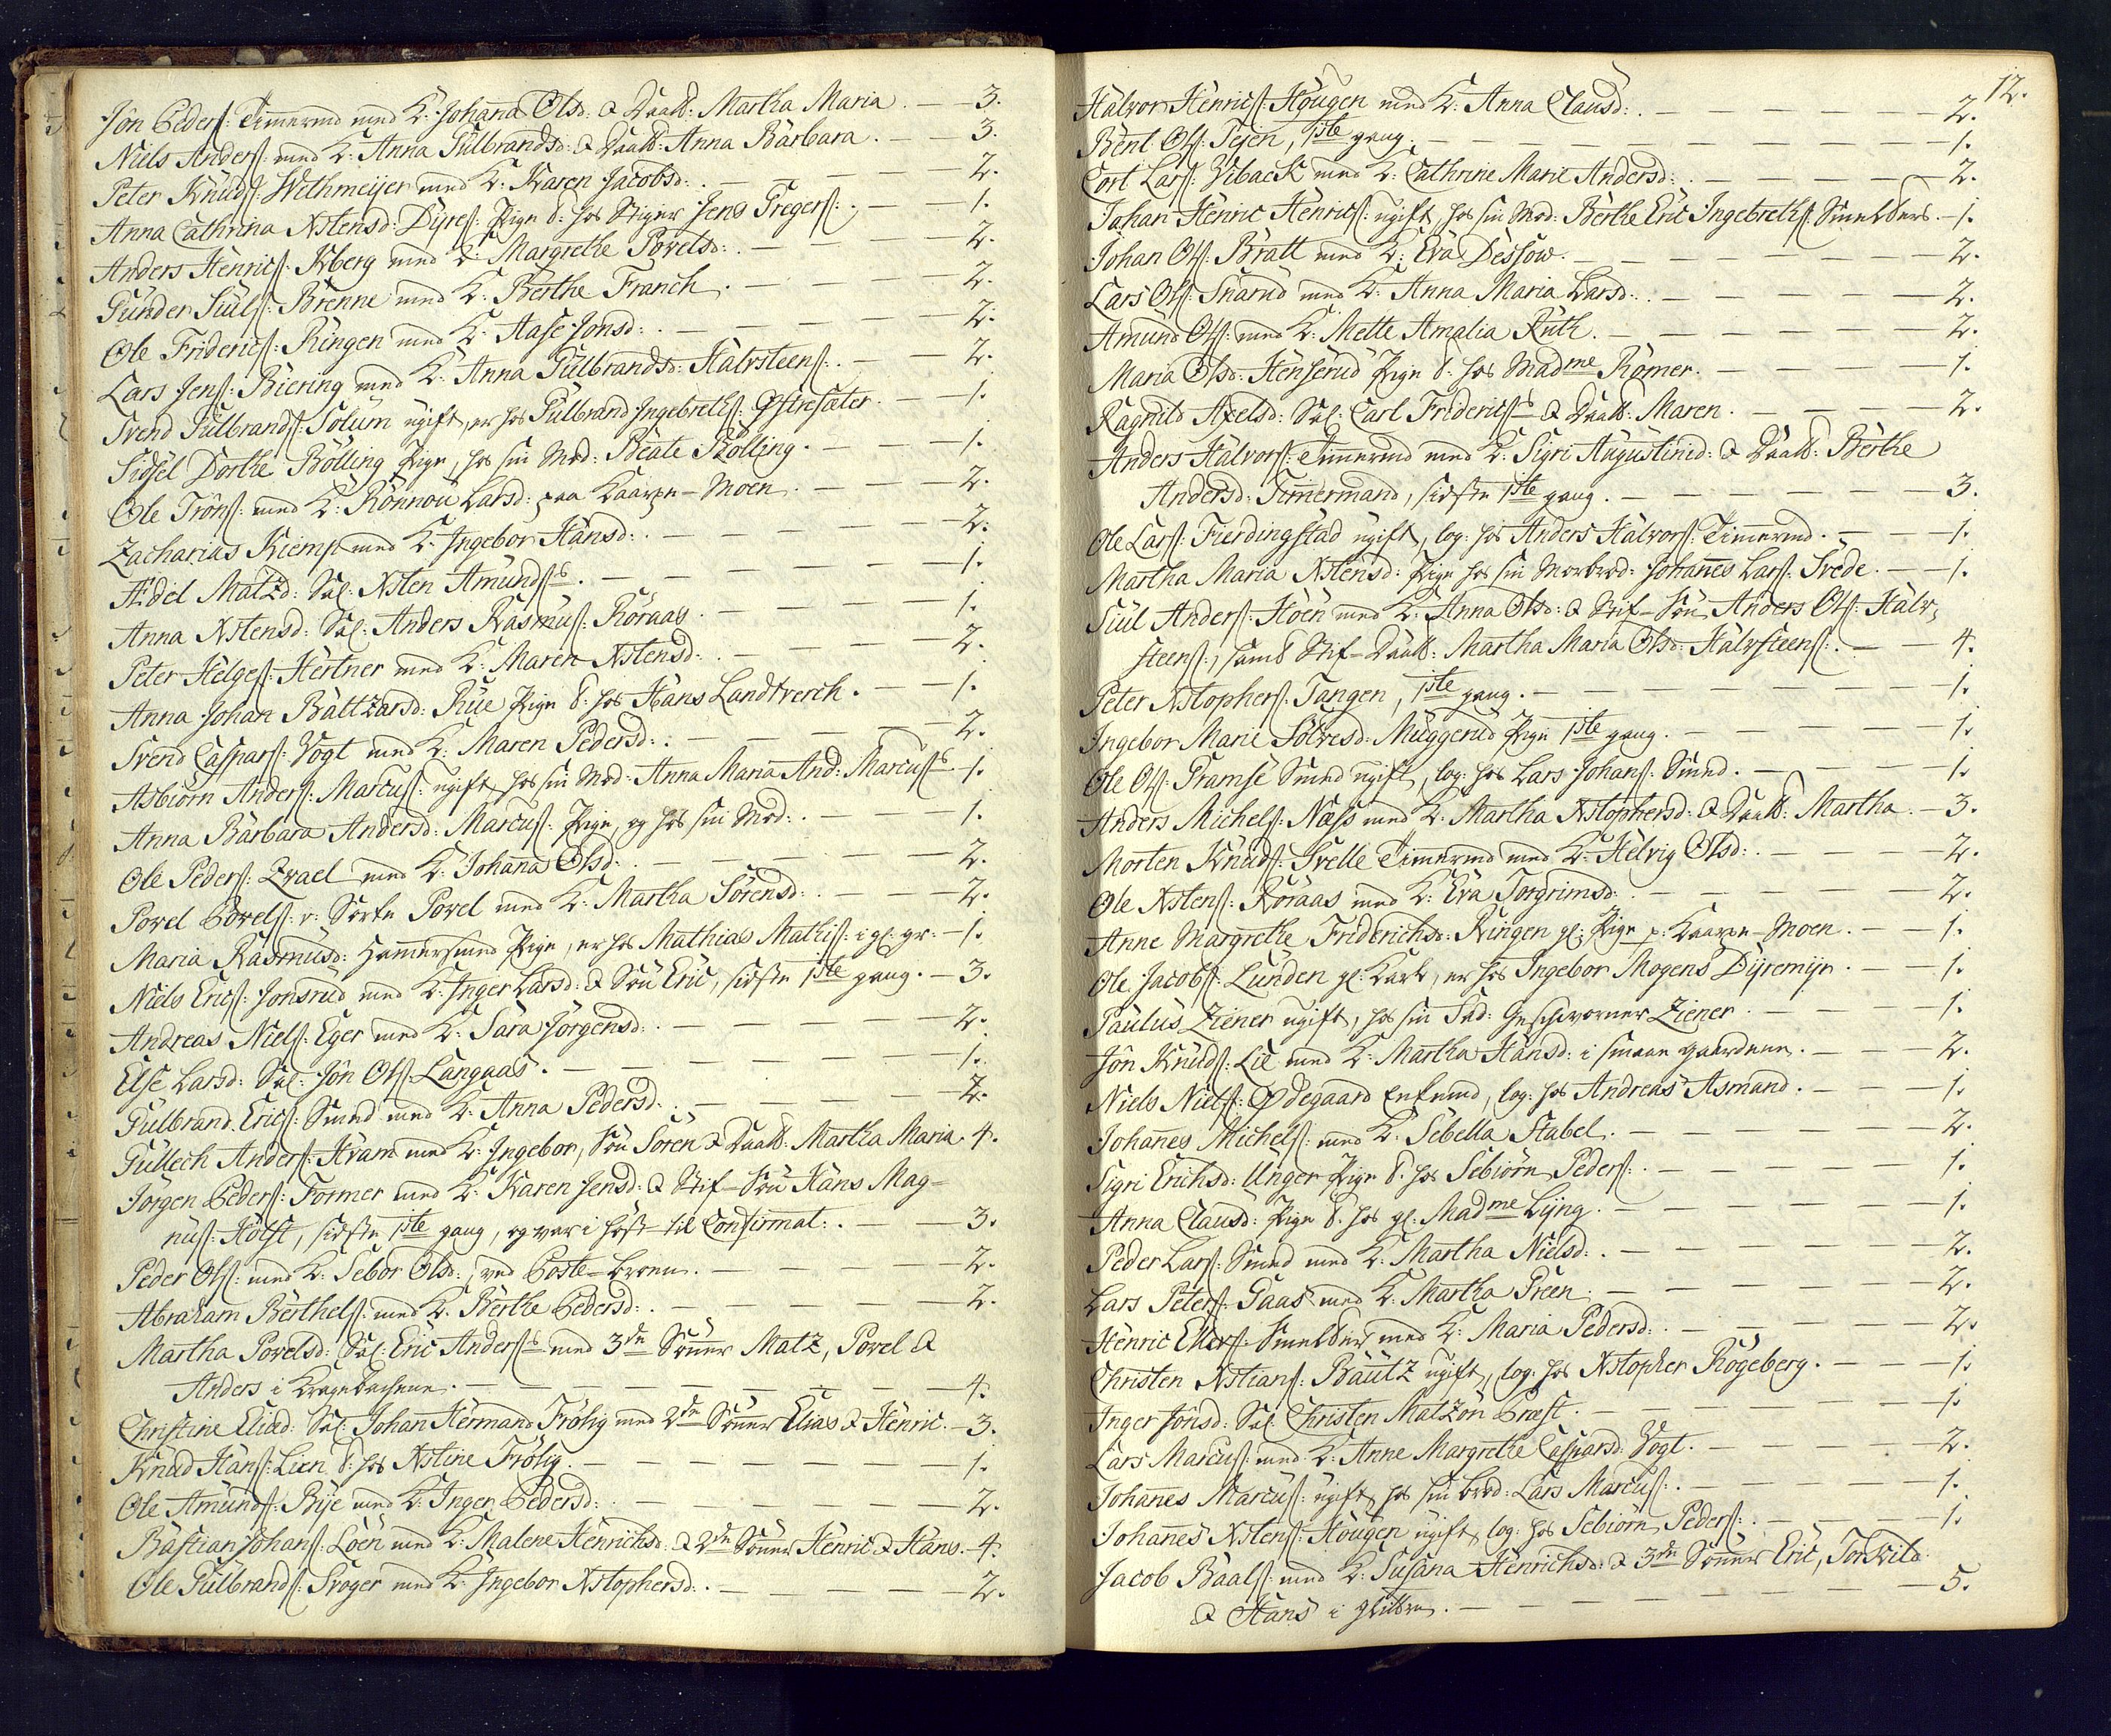 Jon Peders: Timermd med K: Johana Olsd: & Daatt: Martha Maria. — 3.
Niels Anders: med K: Anna Gulbrandsd: & Daatt: Anna Barbara. — 3.
Peter Knuds: Wethmeijer med K: Karen Jacobsd: . — 2.
Anna Cathrina Xstensd: Dyres: Pige t: hos Stiger Jens Gregers: . — 1.
Anders Henrics: Kberg med K: Margrethe Povelsd: . — 2.
Gunder Juuls: Brenne med K: Berthe Franch. — 2.
Ole Friderics: Ringen med K: Aase Jonsd: . — 2.
Lars Jens: Biering med K: Anna Gulbrandsd: Halvsteens: . — 2.
Svend Gulbrands: Solum ugift, er hos Gulbrand Ingebreths: Østresæter. — 1.
Sidsel Dorthe Bölling Pige, hos sin Mod: Beate Bölling. — 1.
Ole Trons: med K: Ronnou Larsd: paa Kaarpe-Moen. — 2.
Zacharias Kiemp med K: Ingebor Hansd: . — 2.
Ædel Matzd: Sal: Xsten Amunds:s. — 1.
Anna Xstensd: Sal: Anders Rasmus: Röraas. — 1.
Peter Helges: Hertner med K: Maren Xstensd: . — 2.
Anna Johan Baltzarsd: Rue Pige t: hos Hans Landtverch. — 1.
Svend Caspars: Vogt med K: Maren Pedersd: . — 2.
Asbiorn Anders: Marcus: ugift, hos sin Mod: Anna Maria And: Marcus:s — 1.
Anna Barbara Andersd: Marcus: Pige, og hos sin Mod: . — 1.
Ole Peders: Zrael med K: Johana Olsd: . — 2.
Povel Povels: v: Sorte Povel med K: Martha Sörensd: . — 2.
Maria Rasmusd: Hamersmed Pige, er hos Mathias Mathis: i gl: gr: — 1.
Niels Erics: Jonsrud med K: Inger Larsd: & Sön Eric, sidste 1ste gang. — 3.
Andreas Niels: Eger med K: Sara Jörgensd: . — 2.
Else Larsd: Sal: Jon Ols: Langaas. — 1.
Gulbrand Erics: Smed med K: Anna Pedersd: . — 2.
Gullech Anders: Kvam med K: Ingebor, Sön Sören & Daatt: Martha Maria. 4.
Jörgen Peders: Former med K: Karen Jensd: & Stif-Sön Hans Mag-
nus: Holst, sidste 1ste gang, og var i höst til Confirmat: . — 3.
Peder Ols: med K: Sebor Olsd: , ved Poste-Broen. — 2.
Abraham Berthels: med K: Berthe Pedersd: . — 2.
Martha Povelsd: Sal: Eric Anders:s med 3de Sönner Matz, Povel &
Anders i Kragebachene. — 4.
Christine Eliæd: Sal: Johan Hermand Frölig med 2de Sönner Elias & Henric. — 3.
Knud Hans: Lien t: hos Xstine Frölig. — 1.
Ole Amunds: Bye med K: Inger Pedersd: . — 2.
Bastian Johans: Loen med K: Malene Henrichsd: & 2de Sönner Henric & Hans. — 4.
Ole Gulbrands: Svoger med K: Ingebor Xstophersd: . — 2.
12.
Halvor Henrics: Hougen med K: Anna Clausd: . — 2.
Bent Ols: Tejen, 1ste gang. — 1.
Cort Lars: Viback med K: Cathrine Marie Andersd: . — 2.
Johan Henric Henrics: ugift, hos sin Mod: Berthe Eric Ingebreths: Smelters. — 1.
Johan Ols: Bratt med K: Eva Dessow. — 2.
Lars Ols: Snarud med K: Anna Maria Larsd: . — 2.
Amund Ols: med K: Mette Amalia Ruth. — 2.
Maria Olsd: Henserud Pige t: hos Madme Römer. — 1.
Ragnild Axelsd: Sal: Carl Friderics:s & Daatt: Maren. — 2.
Anders Halvors: Timermd med K: Sigri Augustinid: & Daatt: Berthe
Andersd: Timermand, sidste 1ste gang. — 3.
Ole Lars: Fierdingstad ugift, log: hos Anders Halvors: Timermd. — 1.
Martha Maria Xstensd: Pige hos sin Morbrod: Johannes Lars: Svede. — 1.
Juul Anders: Hoen med K: Anna Olsd: & Stif-Sön Anders Ols: Halv,
steens: , samt Stif-Daatt: Martha Maria Olsd: Halvsteens: . — 4.
Peter Xstophers: Tangen, 1ste gang. — 1.
Ingebor Marie Solvesd: Muggerud Pige 1ste gang. — 1.
Ole Ols: Gramse Smed ugift, log: hos Lars Johans: Smed. — 1.
Anders Michels: Næss med K: Martha Xstophersd: & Daatt: Martha. — 3.
Morten Knuds: Svelle Timermd med K: Helvig Olsd: . — 2.
Ole Xstens: Röraas med K: Eva Torgrimsd: . — 2.
Anne Margrethe Friderichsd: Ringen gl: Pige p: Kaarpe-Moen. — 1.
Ole Jacobs: Lunden gl: Karl, er hos Ingebor Mogens Dyremyr. — 1.
Paulus Ziener ugift, hos sin Fad: Geschworner Ziener. — 1.
Jon Knuds: Lie med K: Martha Hansd: i smaae gaardene. — 2.
Niels Niels: Ødegaard Enkemd, log: hos Andreas Asmand. — 1.
Johannes Michels: med K: Sebella Stabel. — 2.
Sigri Erichsd: Unger Pige t: hos Sebiörn Peders: . — 1.
Anna Clausd: Pige t: hos gl: Madme Lyng. — 1.
Peder Lars: Smed med K: Martha Nielsd: . — 2.
Lars Peters: Gaas med K: Martha Green. — 2.
Henric Ellers: Smelter med K: Maria Pedersd: . — 2.
Christen Xstians: Bautz ugift, log: hos Xstopher Rögeberg. — 1.
Inger Jonsd: Sal: Christen Matzön Præst. — 1.
Lars Marcus: med K: Anne Margrethe Caspard: Vogt. — 2.
Johannes Marcus: ugift, hos sin Brod: Lars Marcus: . — 1.
Johannes Xstens: Hougen ugift, log: hos Sebiörn Peders: . — 1.
Jacob Baals: med K: Susana Henrichsd: & 3de Sönner Eric, Torkild
& Hans i glitten. — 5.